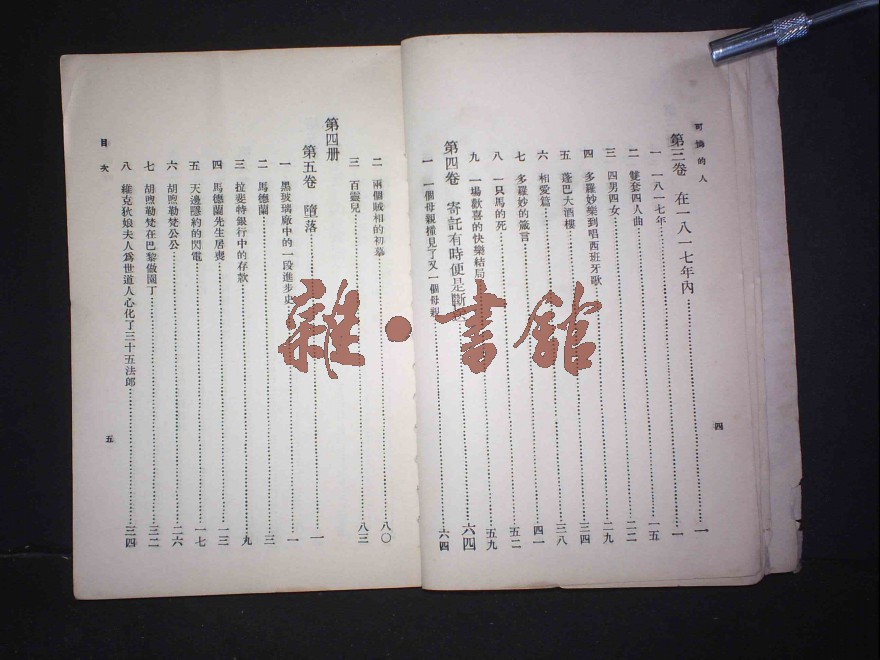 可憐的人
第三卷 在一八一七年內 一
一 一八一七年 一
二 雙套四人曲 一五
三 四男四女 二二
四 多羅妙樂到唱西班牙歌 二九
五 蓬巴大酒樓 三四
六 相愛篇 三八
七 多羅妙的箴言 四一
八 一只馬的死 五二
九 一場歡喜的快樂結局 五九
第四卷 寄託有時便是斷 六四
一 一個母親撞見了又一個母親 六四
四
二 兩個賊相的初摹 八〇
三 百靈兒 八三
第四册
第五卷 墮落 一
一 黑玻璃廠中的一段進步史 一
二 馬德蘭 三
三 拉斐特銀行中的存款 九
四 馬德蘭先生居喪 一三
五 天邊隱約的閃電 一七
六 胡煦勒梵公公 二六
七 胡煦勒梵在巴黎做園丁 三二
八 維克狄娘夫人爲世道人心化了三十五法郎 三四
目次
五
雜·書館